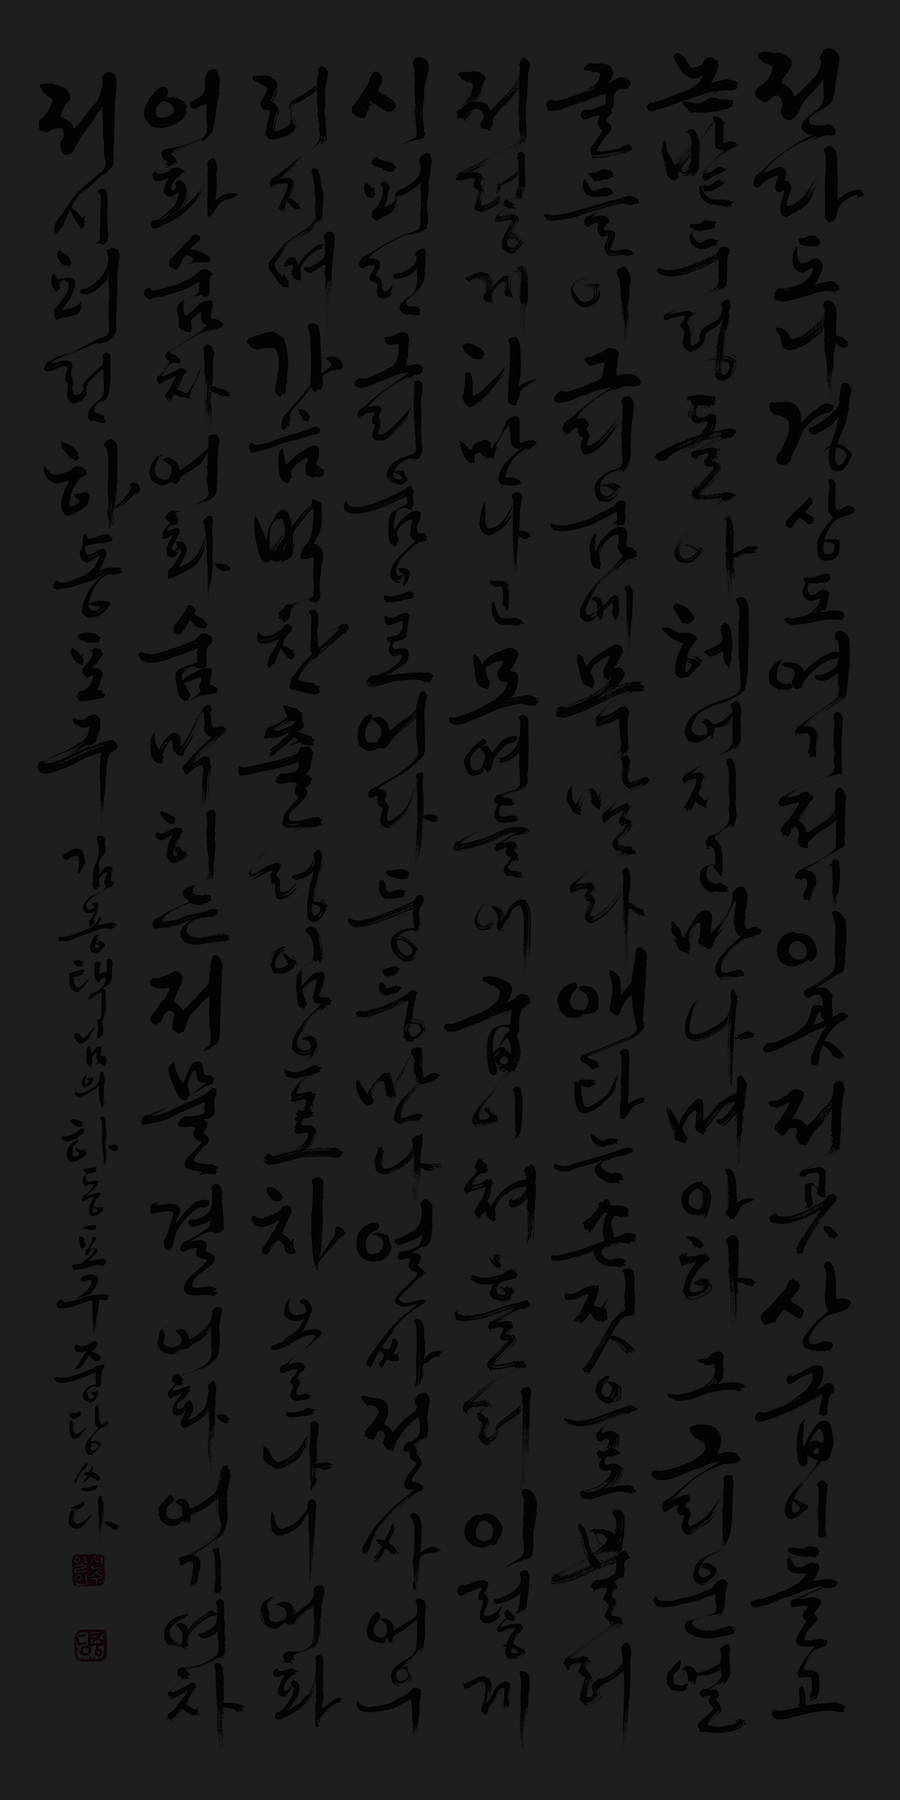 전라도나경상도여기저기이곳저곳산굽이돌고
논밭두렁돌아헤어지고만나며아하 그그리운얼
굴들이그리움에목말라애타는손짓으로불러
저렇게다만나고모여들어굽이쳐흘러 이렇게
시퍼런그리움으로어라둥둥만나얼싸절싸어우
러지며가슴벅찬출렁임으로차오르나니어화
어화숨차어화숨막히는저물결어화어기여차
저시퍼런하동포구 김용택님의하동포구중당쓰다